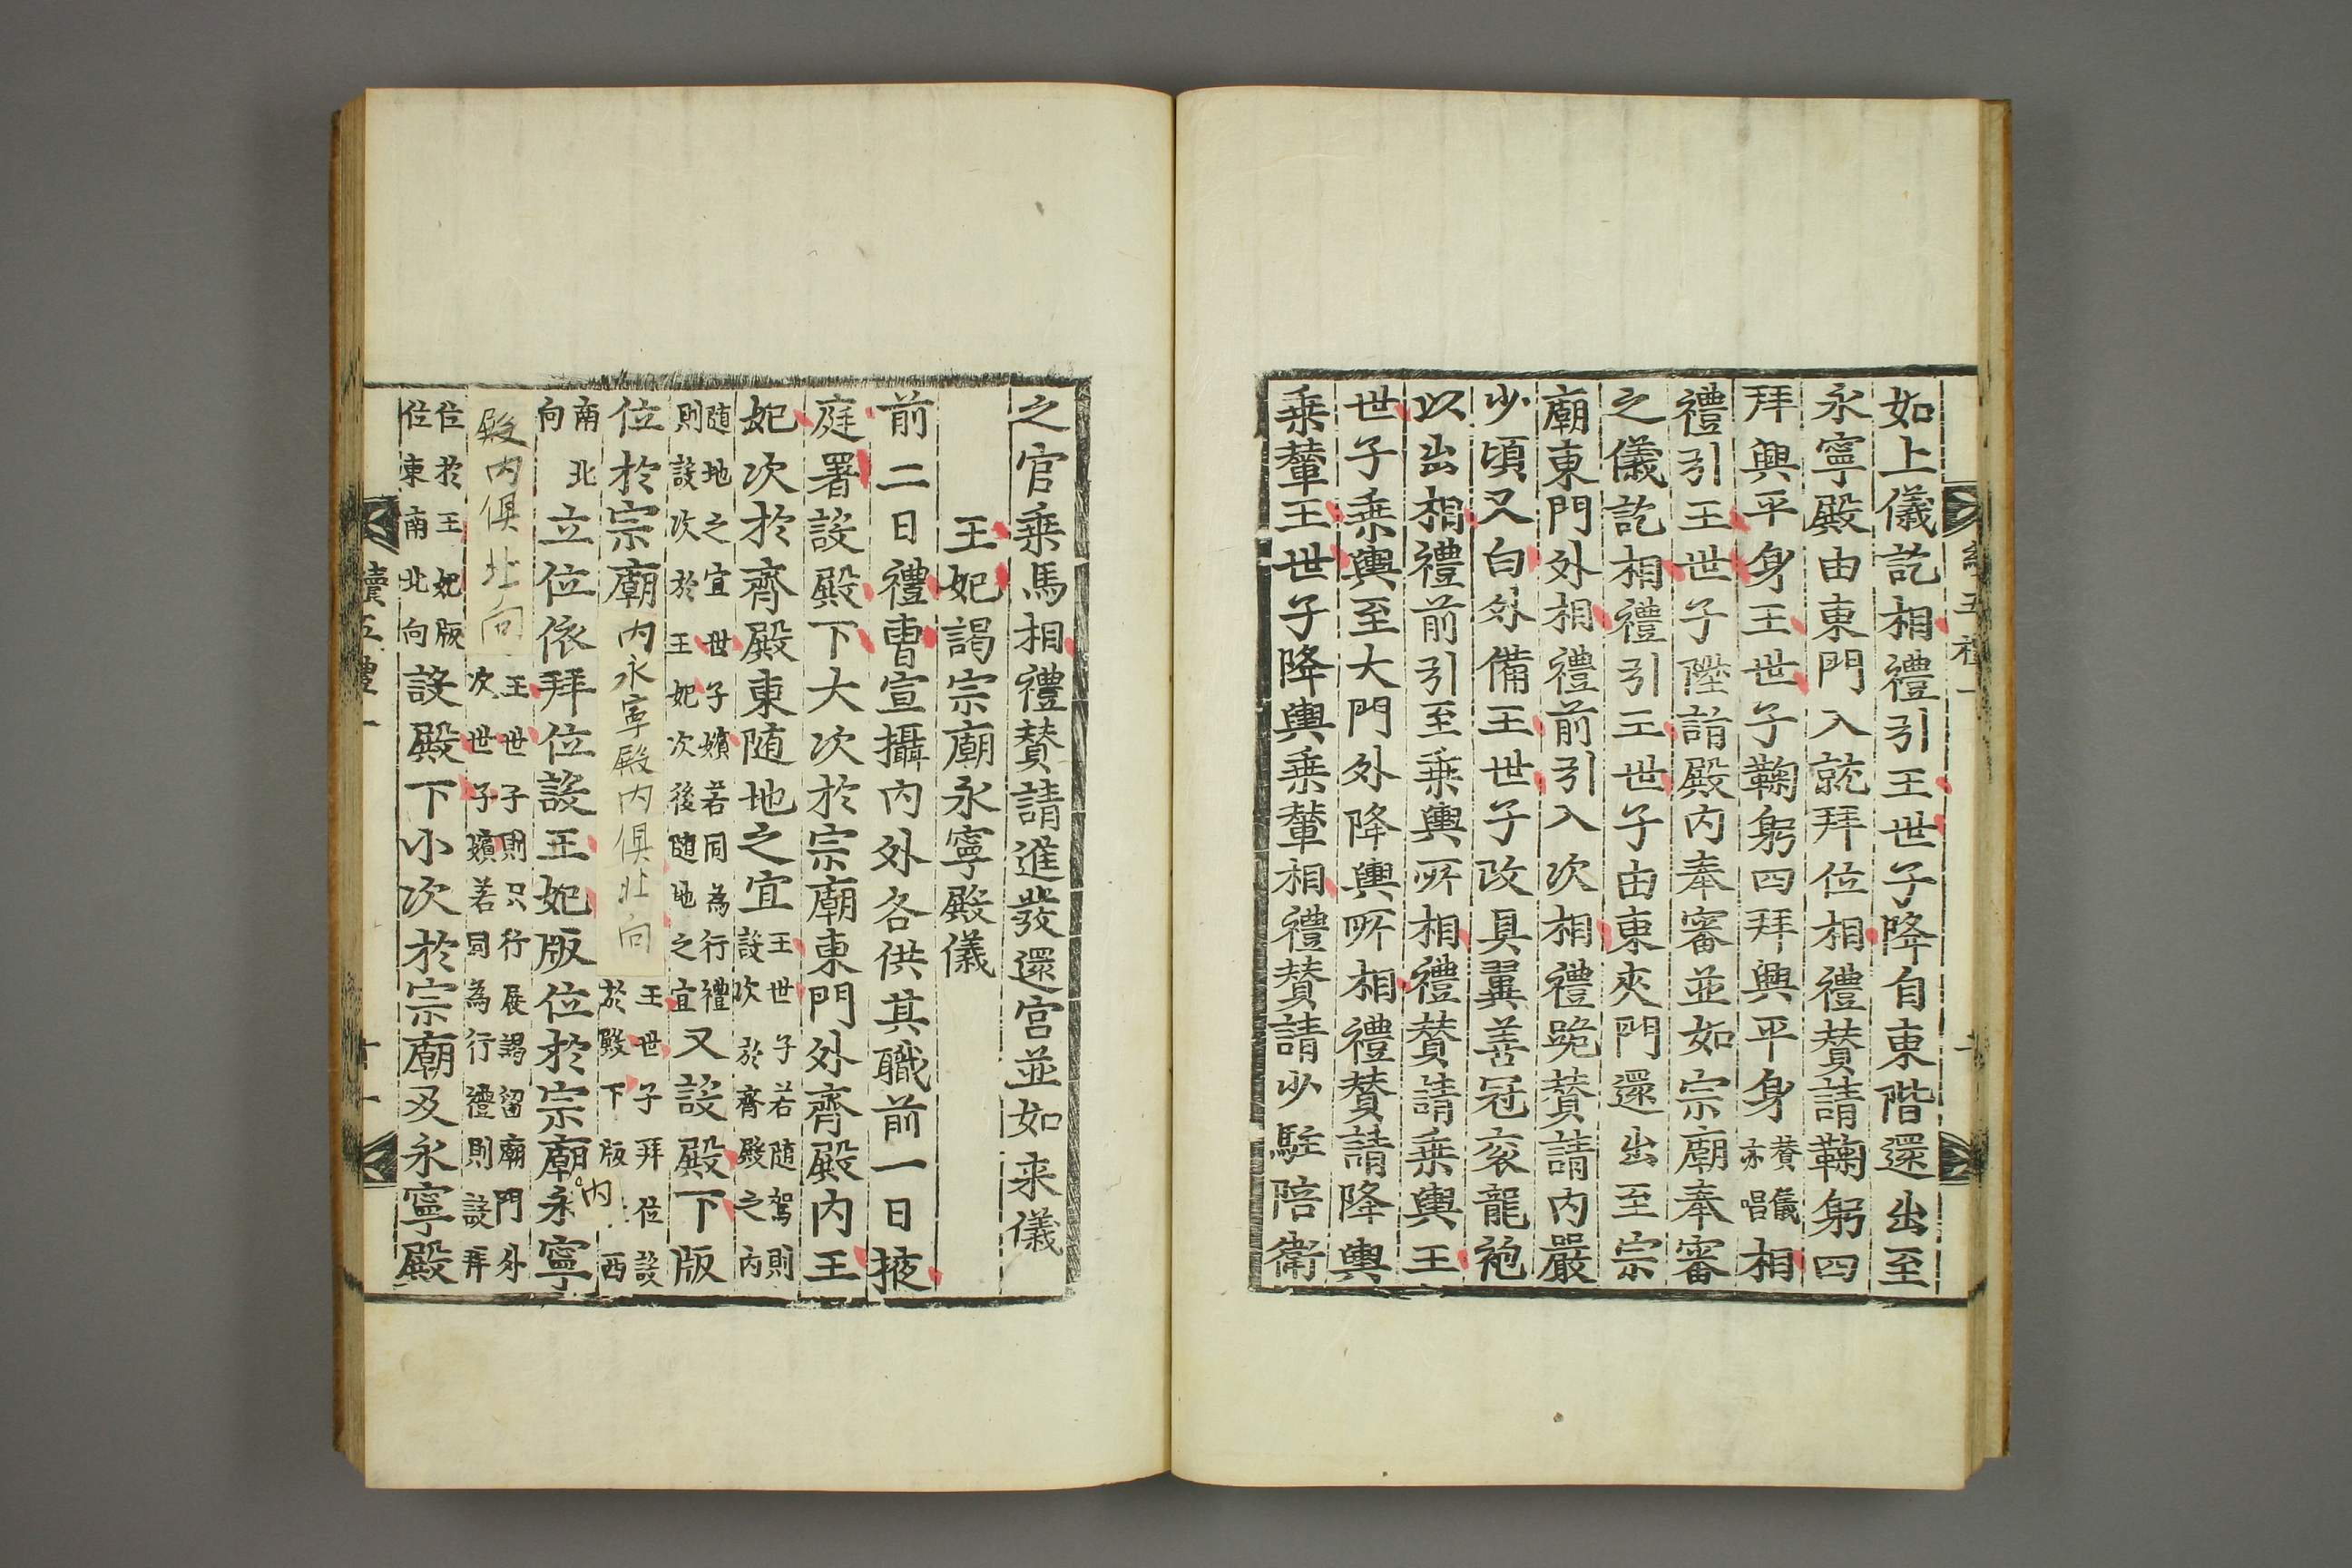 如上儀訖相禮引王世子降自東階還出至
永寧殿由東門入就拜位相禮贊請鞠躬四
拜興平身王世子鞠躬四拜興平身贊儀亦唱相
禮引王世子陞詣殿內奉審並如宗廟奉審
之儀訖相禮引王世子由東夾門還出至宗
廟東門外相禮前引入次相禮跪贊請內嚴
少頃又白外備王世子改具翼善冠袞龍袍
以出相禮前引至乘輿所相禮贊請乘輿王
世子乘輿至大門外降輿所相禮贊請降輿
乘輦王世子降輿乘輦相禮贊請少駐陪衛
之官乘馬相禮贊請進發還宮並如來儀
王妃謁宗廟永寧殿儀
前二日禮曹宣攝內外各供其職前一日掖
庭署設殿下大次於宗廟東門外齊殿內王
妃次於齊殿東隨地之宜王世子若隨駕則設次於齊殿之內
隨地之宜世子嬪若同為行禮則設次於王妃次後隨地之宜又設殿下版
位於宗廟內永寧殿內俱北向王世子拜位設於殿下版西
南北向立位依拜位設王妃版位於宗廟永內寧
殿內俱北向王世子則只行展謁留廟門外次世子嬪若同為行禮則設拜
位於王妃版位東南北向設殿下小次於宗廟及永寧殿
續五禮一